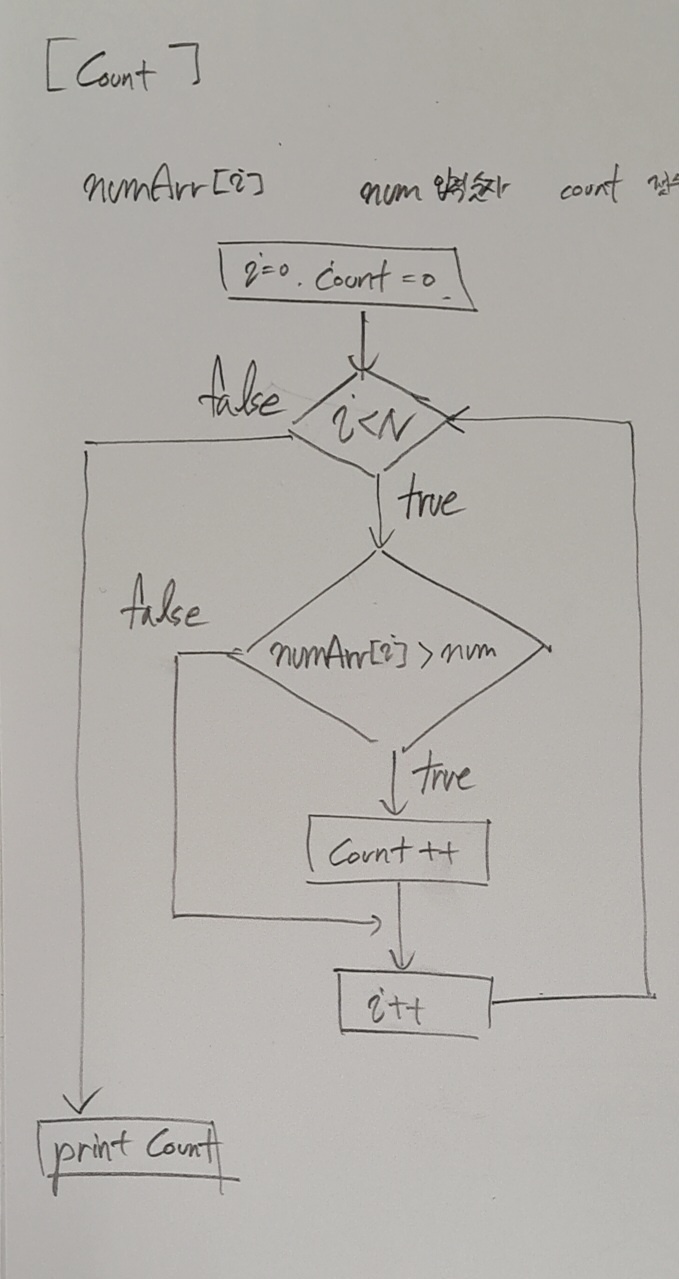 [Count]
numArr[i] num 입력숫자 count
i=0. Count=0.
false
i<N
true
false
numArr[i] > num
true
Count++
i++
print Count